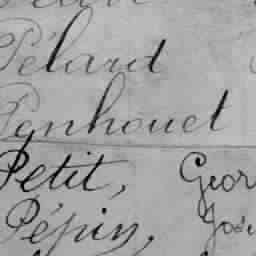 Pélard
Penhouet
Petit, Geor
Pépin, Jos